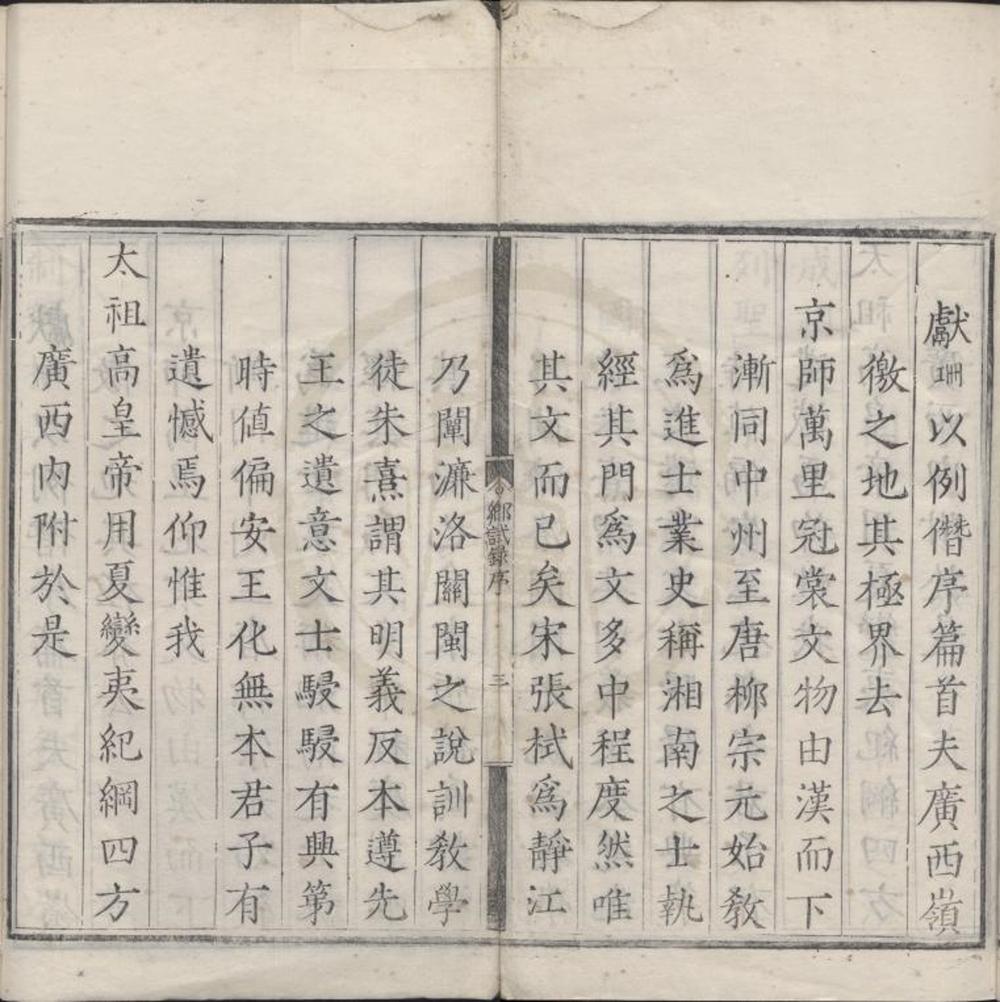 獻珊以例僭序篇首夫廣西嶺
徼之地其極界去
京師萬里冠裳文物由漢而下
漸同中州至唐柳宗元始敎
爲進士業史稱湘南之士執
經其門爲文多中程度然唯
其文而已矣宋張栻爲靜江
鄉試錄序 三
乃闡濂洛關閩之說訓敎學
徒朱熹謂其明義反本遵先
王之遺意文士駸駸有興第
時值偏安王化無本君子有
遺憾焉仰惟我
太祖高皇帝用夏變夷紀綱四方
廣西內附於是